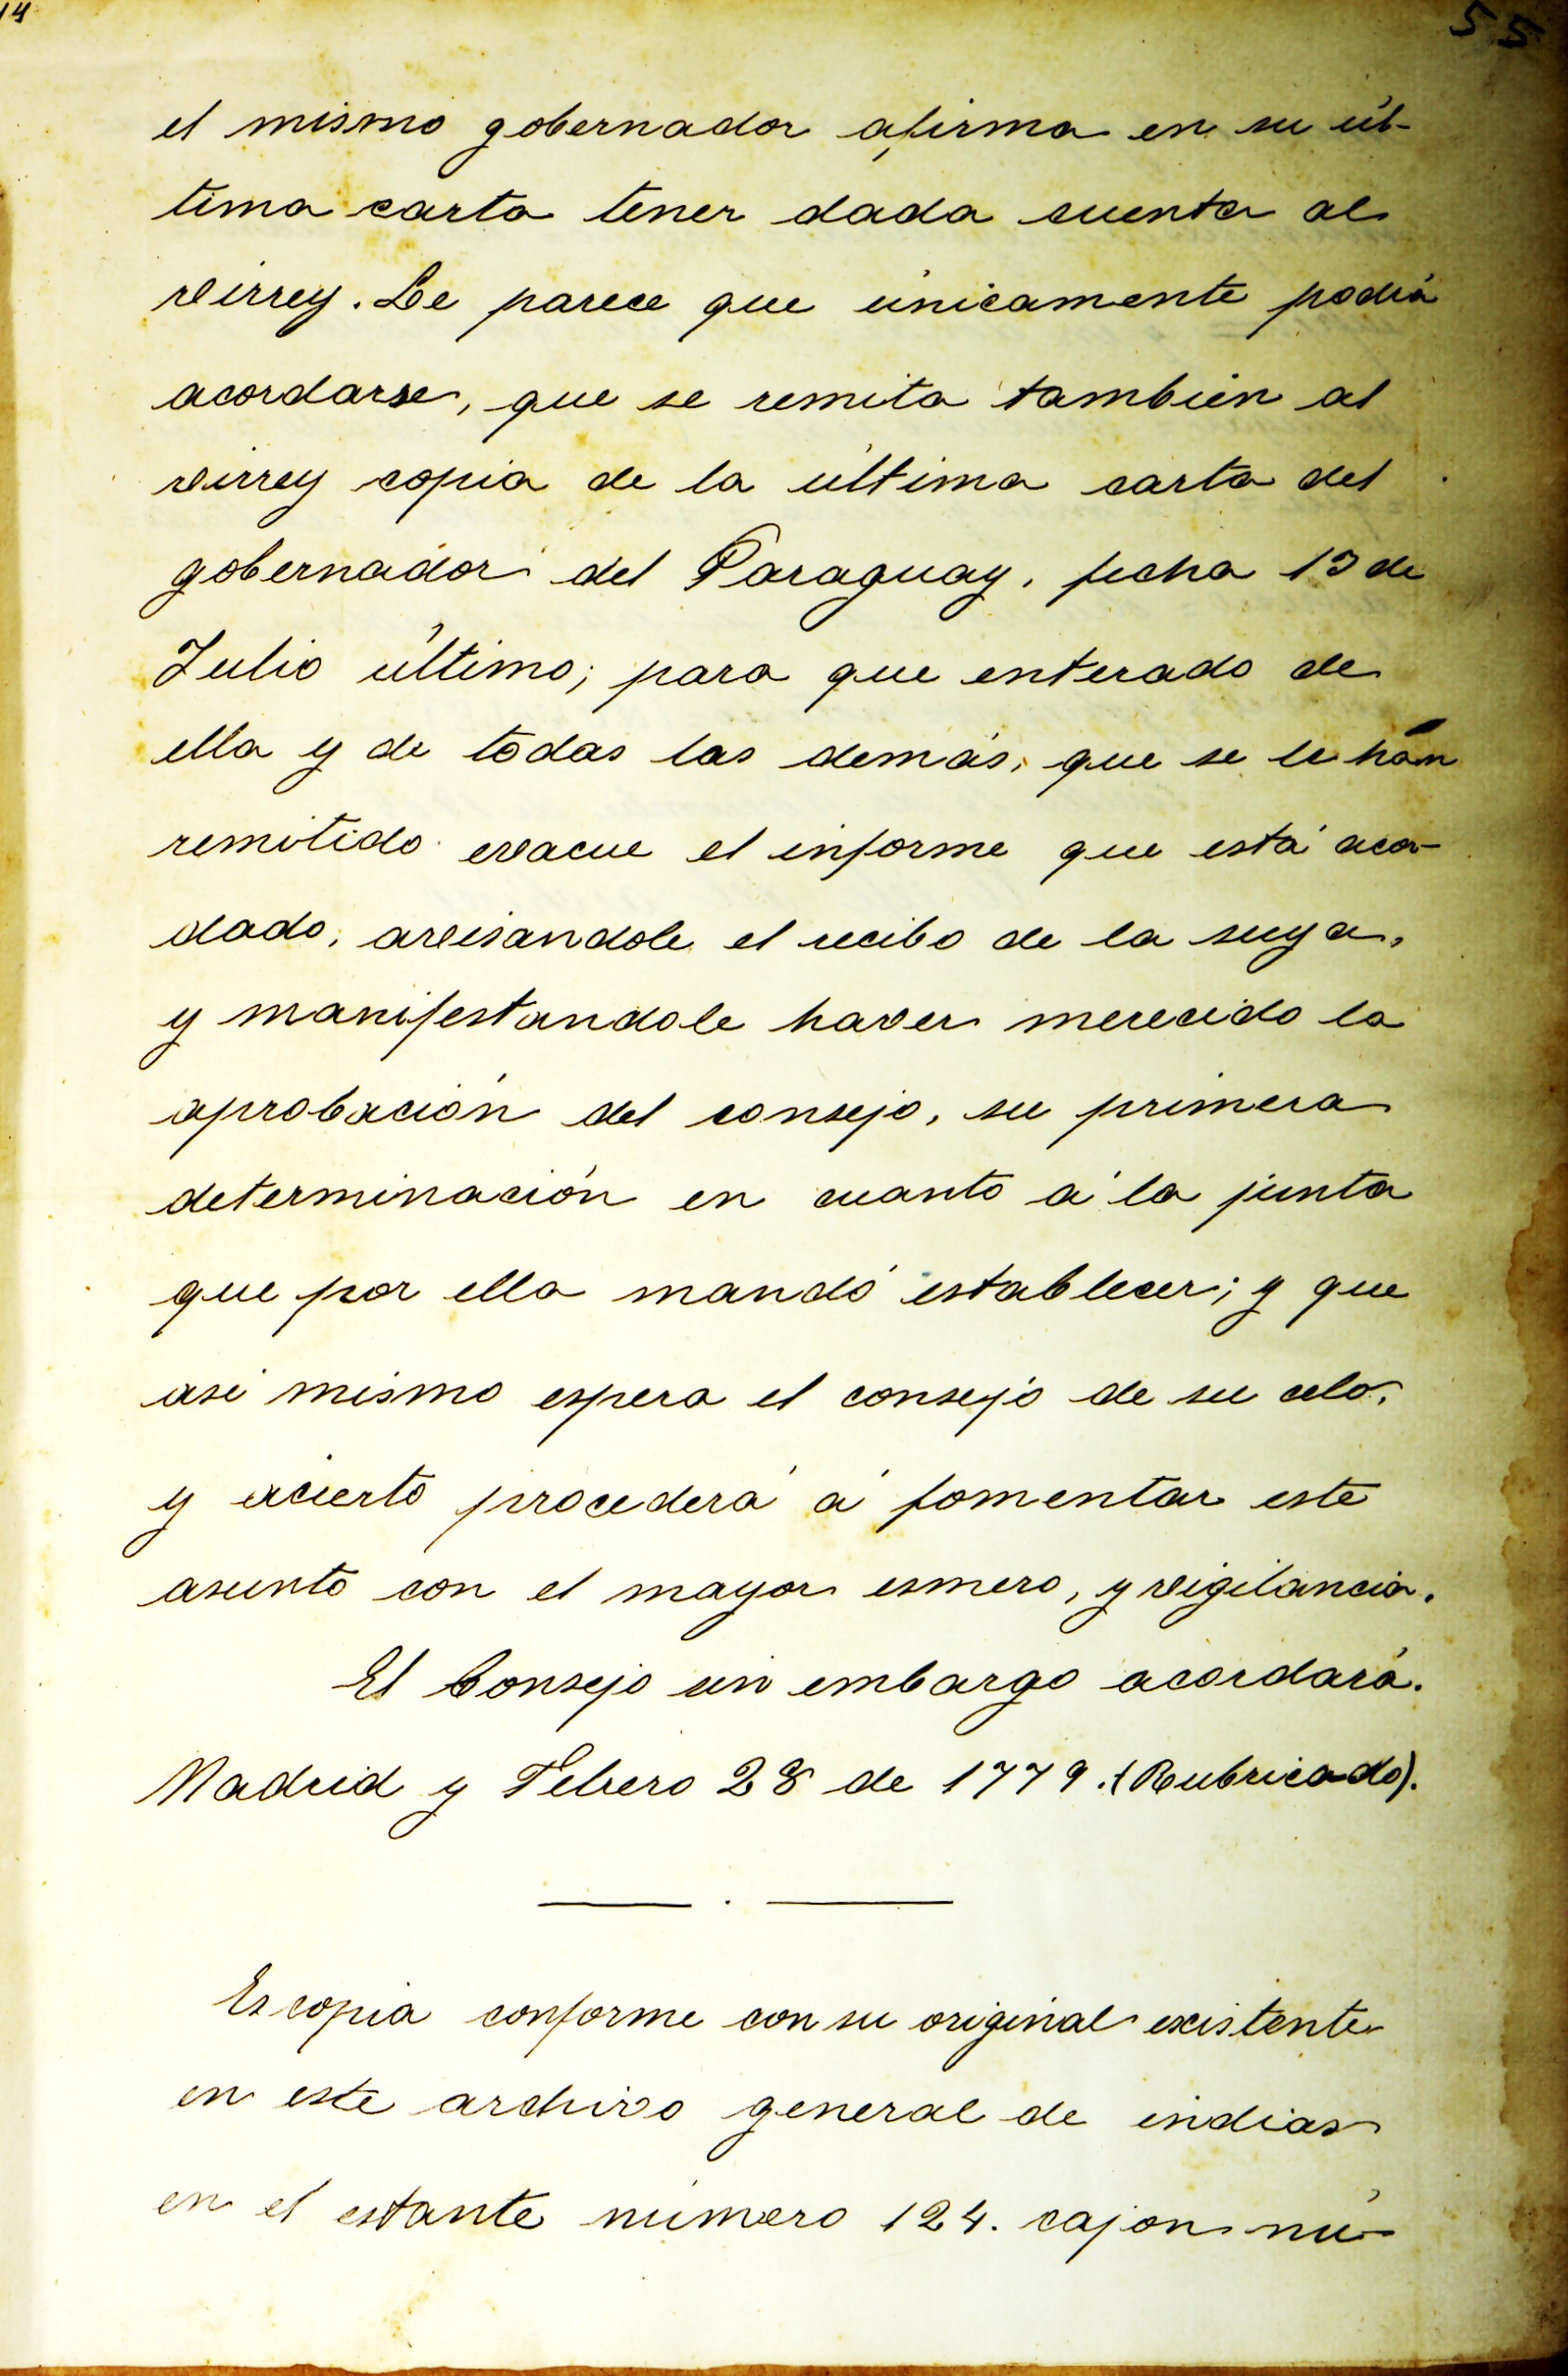 14
55
el mismo gobernador afirma en su úl-
tima carta tener dada cuenta al
virrey. Le parece que únicamente podrá
acordarse, que se remita también al
virrey copia de la última carta del
gobernador del Paraguay, fecha 13 de
Julio último; para que enterado de
ella y de todas las demás, que se le hán
remitido evacue el informe que está acor-
dado, avisandole el recibo de la suya,
y manifestandole haver merecido la
aprobación del consejo, su primera
determinación en cuanto á la junta
que por ella mandó establecer; y que
asi mismo espera el consejo de su celo,
y acierto procederá á fomentar este
asunto con el mayor esmero, y vigilancia.
El Consejo sin embargo acordará.
Madrid y Febrero 28 de 1779. (Rubricado).
Es copia conforme con su original existente
en este archivo general de indias
en el estante número 124. cajon nú-